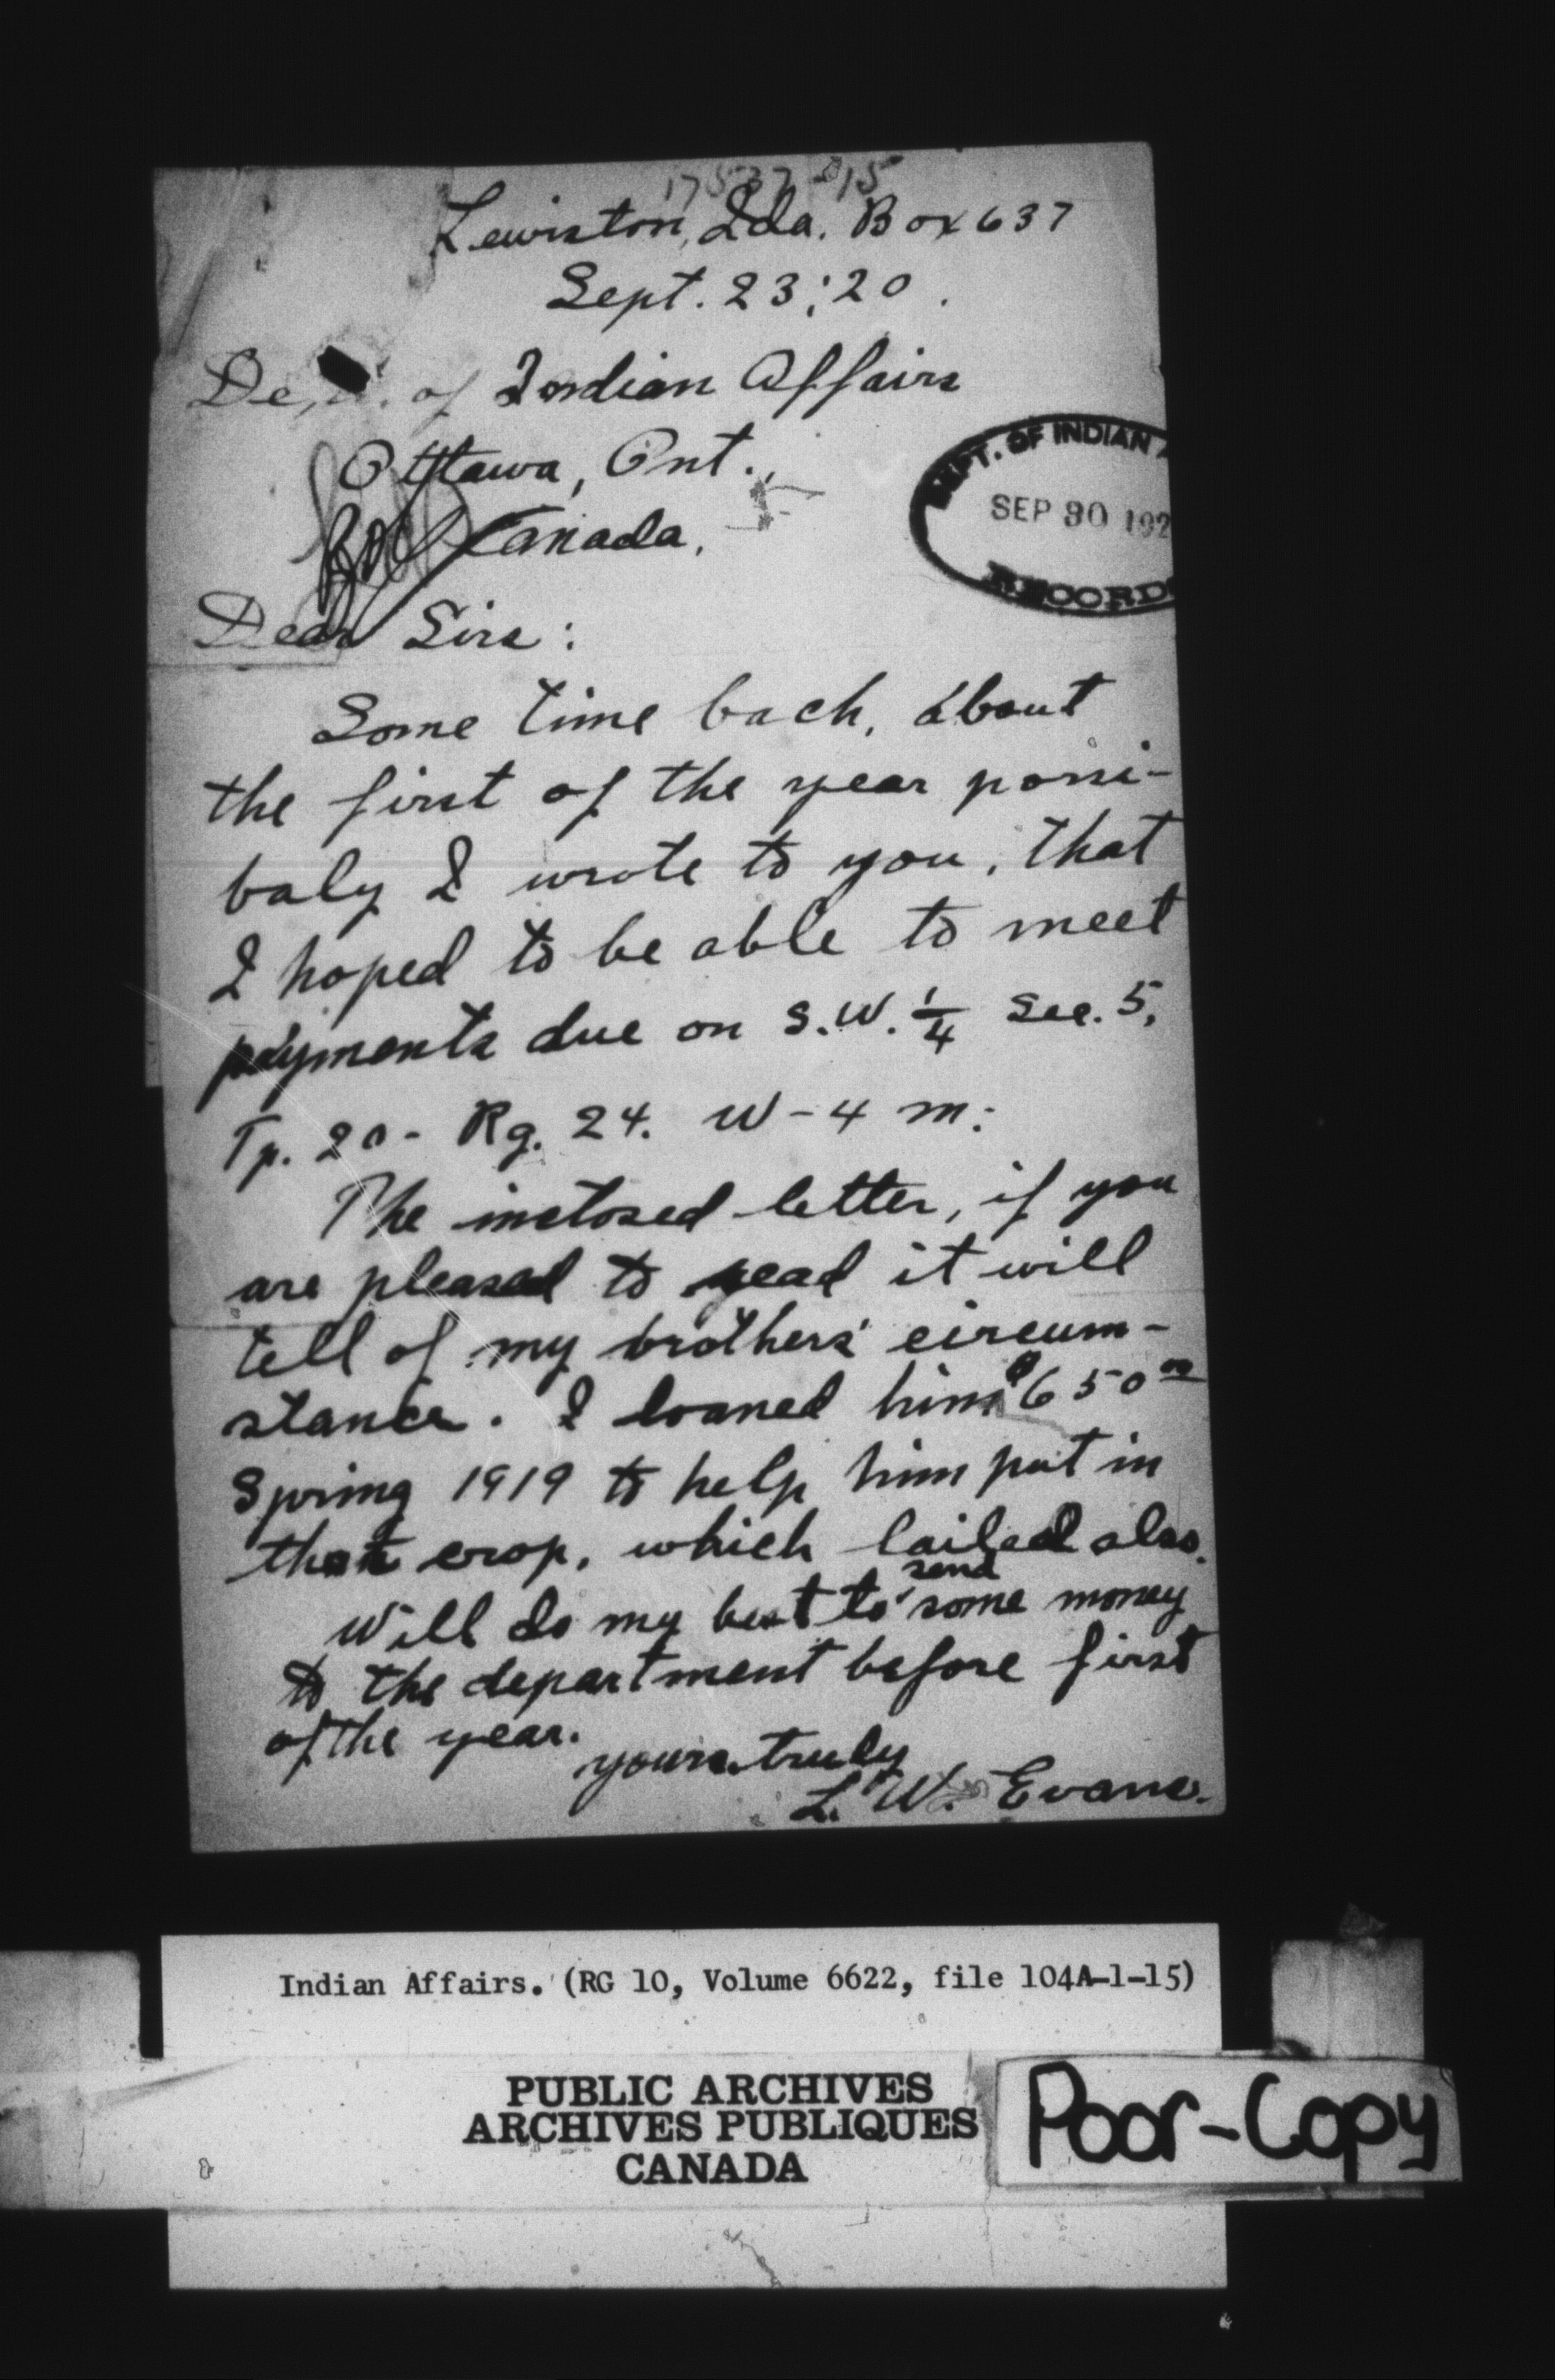 Lewiston, Ida. Box 637
Sept. 23; 20.
Dept. of Indian Affairs
Ottawa, Ont.,
Canada.
DEPT. OF INDIAN A
SEP 30 192
RECORDS
Dear Sirs:
Some time back, about
the first of the year possi-
baly I wrote to you, that
I hoped to be able to meet
payments due on S.W. 1/4 Sec. 5,
Tp. 20 - Rg. 24. W-4 m:
The inclosed letter, if you
are pleased to read it will
tell of my brothers' circum-
stance. I loaned him $650 00
Spring 1919 to help him put in
that crop, which failed also.
Will do my best to send some money
to the department before first
of the year.
yours truly
L. W. Evans.
Indian Affairs. (RG 10, Volume 6622, file 104A-1-15)
PUBLIC ARCHIVES
ARCHIVES PUBLIQUES
CANADA
Poor-Copy